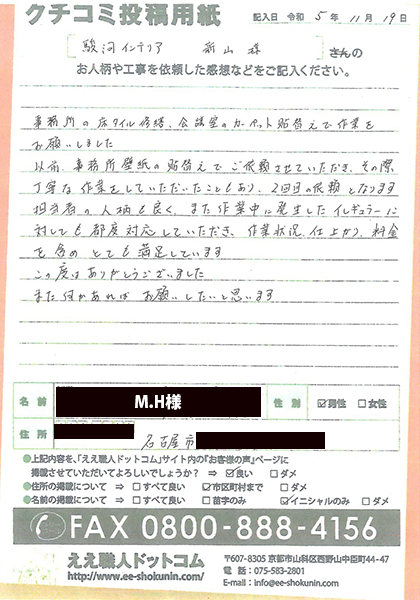 クチコミ投稿用紙
記入日 令和 5年 11月 19日
[ 駿河インテリア 前山 様 ] さんの
お人柄や工事を依頼した感想などをご記入ください。
事務所の床タイル修繕、会議室のカーペット貼替えで作業を
お願いしました
以前、事務所壁紙の貼替えでご依頼させていただき、その際
丁寧な作業をしていただいたこともあり、2回目の依頼となります
担当者の人柄も良く、また作業中に発生したイレギュラーに
対しても都度対応していただき、作業状況、仕上がり、料金
を含め とても満足しています
この度はありがとうございました
また何かあれば お願いしたいと思います
名前 M.H様 性別 ☑男性 □女性
住所 名古屋市
●上記内容を、「ええ職人ドットコム」サイト内の『お客様の声』ページに
掲載させていただいてよろしいでしょうか? ⇒ ☑良い □ダメ
●住所の掲載について ⇒ □すべて良い ☑市区町村まで □ダメ
●名前の掲載について ⇒ □すべて良い □苗字のみ ☑イニシャルのみ □ダメ
FAX 0800-888-4156
ええ職人ドットコム
http://www.ee-shokunin.com/
〒607-8305 京都市山科区西野山中臣町44-47
電話:075-583-2801
E-mail:info@ee-shokunin.com